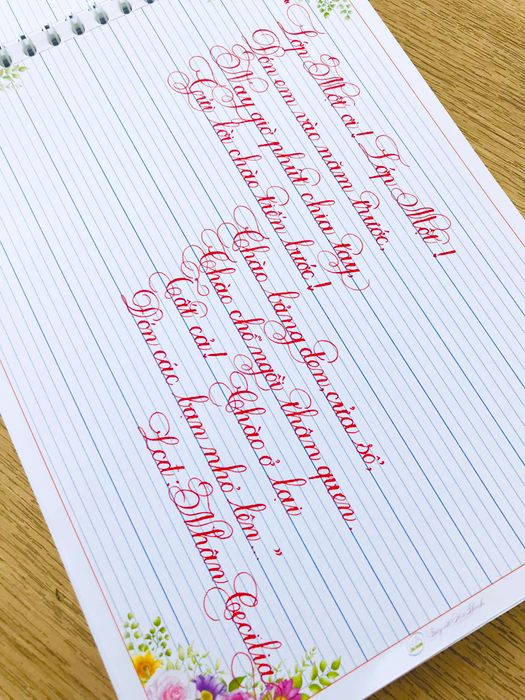 "Lớp Một ơi! Lớp Một!
Đón em vào năm trước,
Nay giờ phút chia tay,
Gửi lời chào tiến bước!
Chào bảng đen, cửa sổ,
Chào chỗ ngồi thân quen.
Tất cả! Chào ở lại
Đón các bạn nhỏ lên..."
Lcđ: Nhân Cecilia